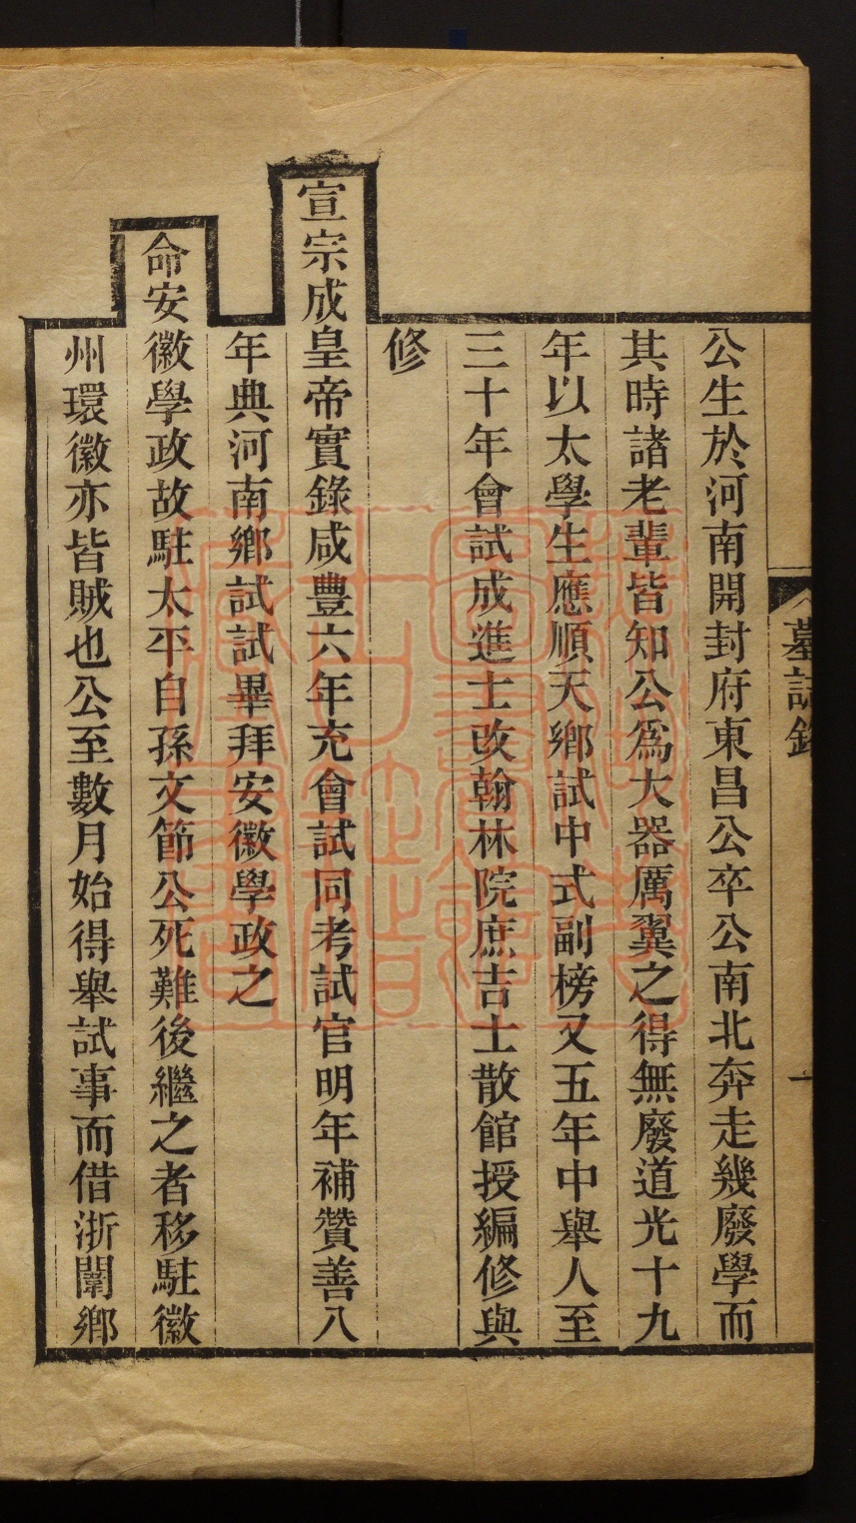 墓誌銘
一
公生於河南開封府東昌公卒公南北奔走幾廢學而
其時諸老輩皆知公爲大器厲翼之得無廢道光十九
年以太學生應順天鄉試中式副榜又五年中舉人至
三十年會試成進士改翰林院庶吉士散館授編修與
修
宣宗成皇帝實錄咸豐六年充會試同考試官明年補贊善八
年典河南鄉試試畢拜安徽學政之
命安徽學政故駐太平自孫文節公死難後繼之者移駐徽
州環徽亦皆賊也公至數月始得舉試事而借浙闈鄉